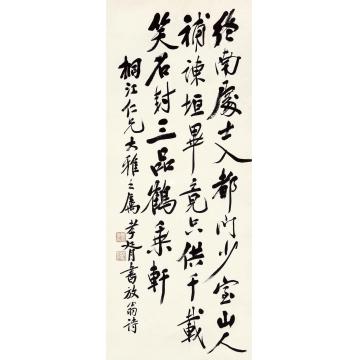 終南處士入都門少室山人
補諫垣畢竟只供千載
笑石封三品鶴乘軒
桐江仁兄大雅之屬 孝胥書放翁詩